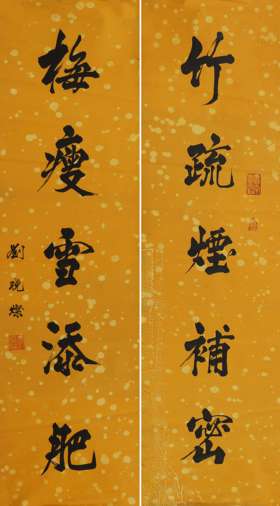 竹疏煙補密
梅瘦雪添肥
劉曉燦